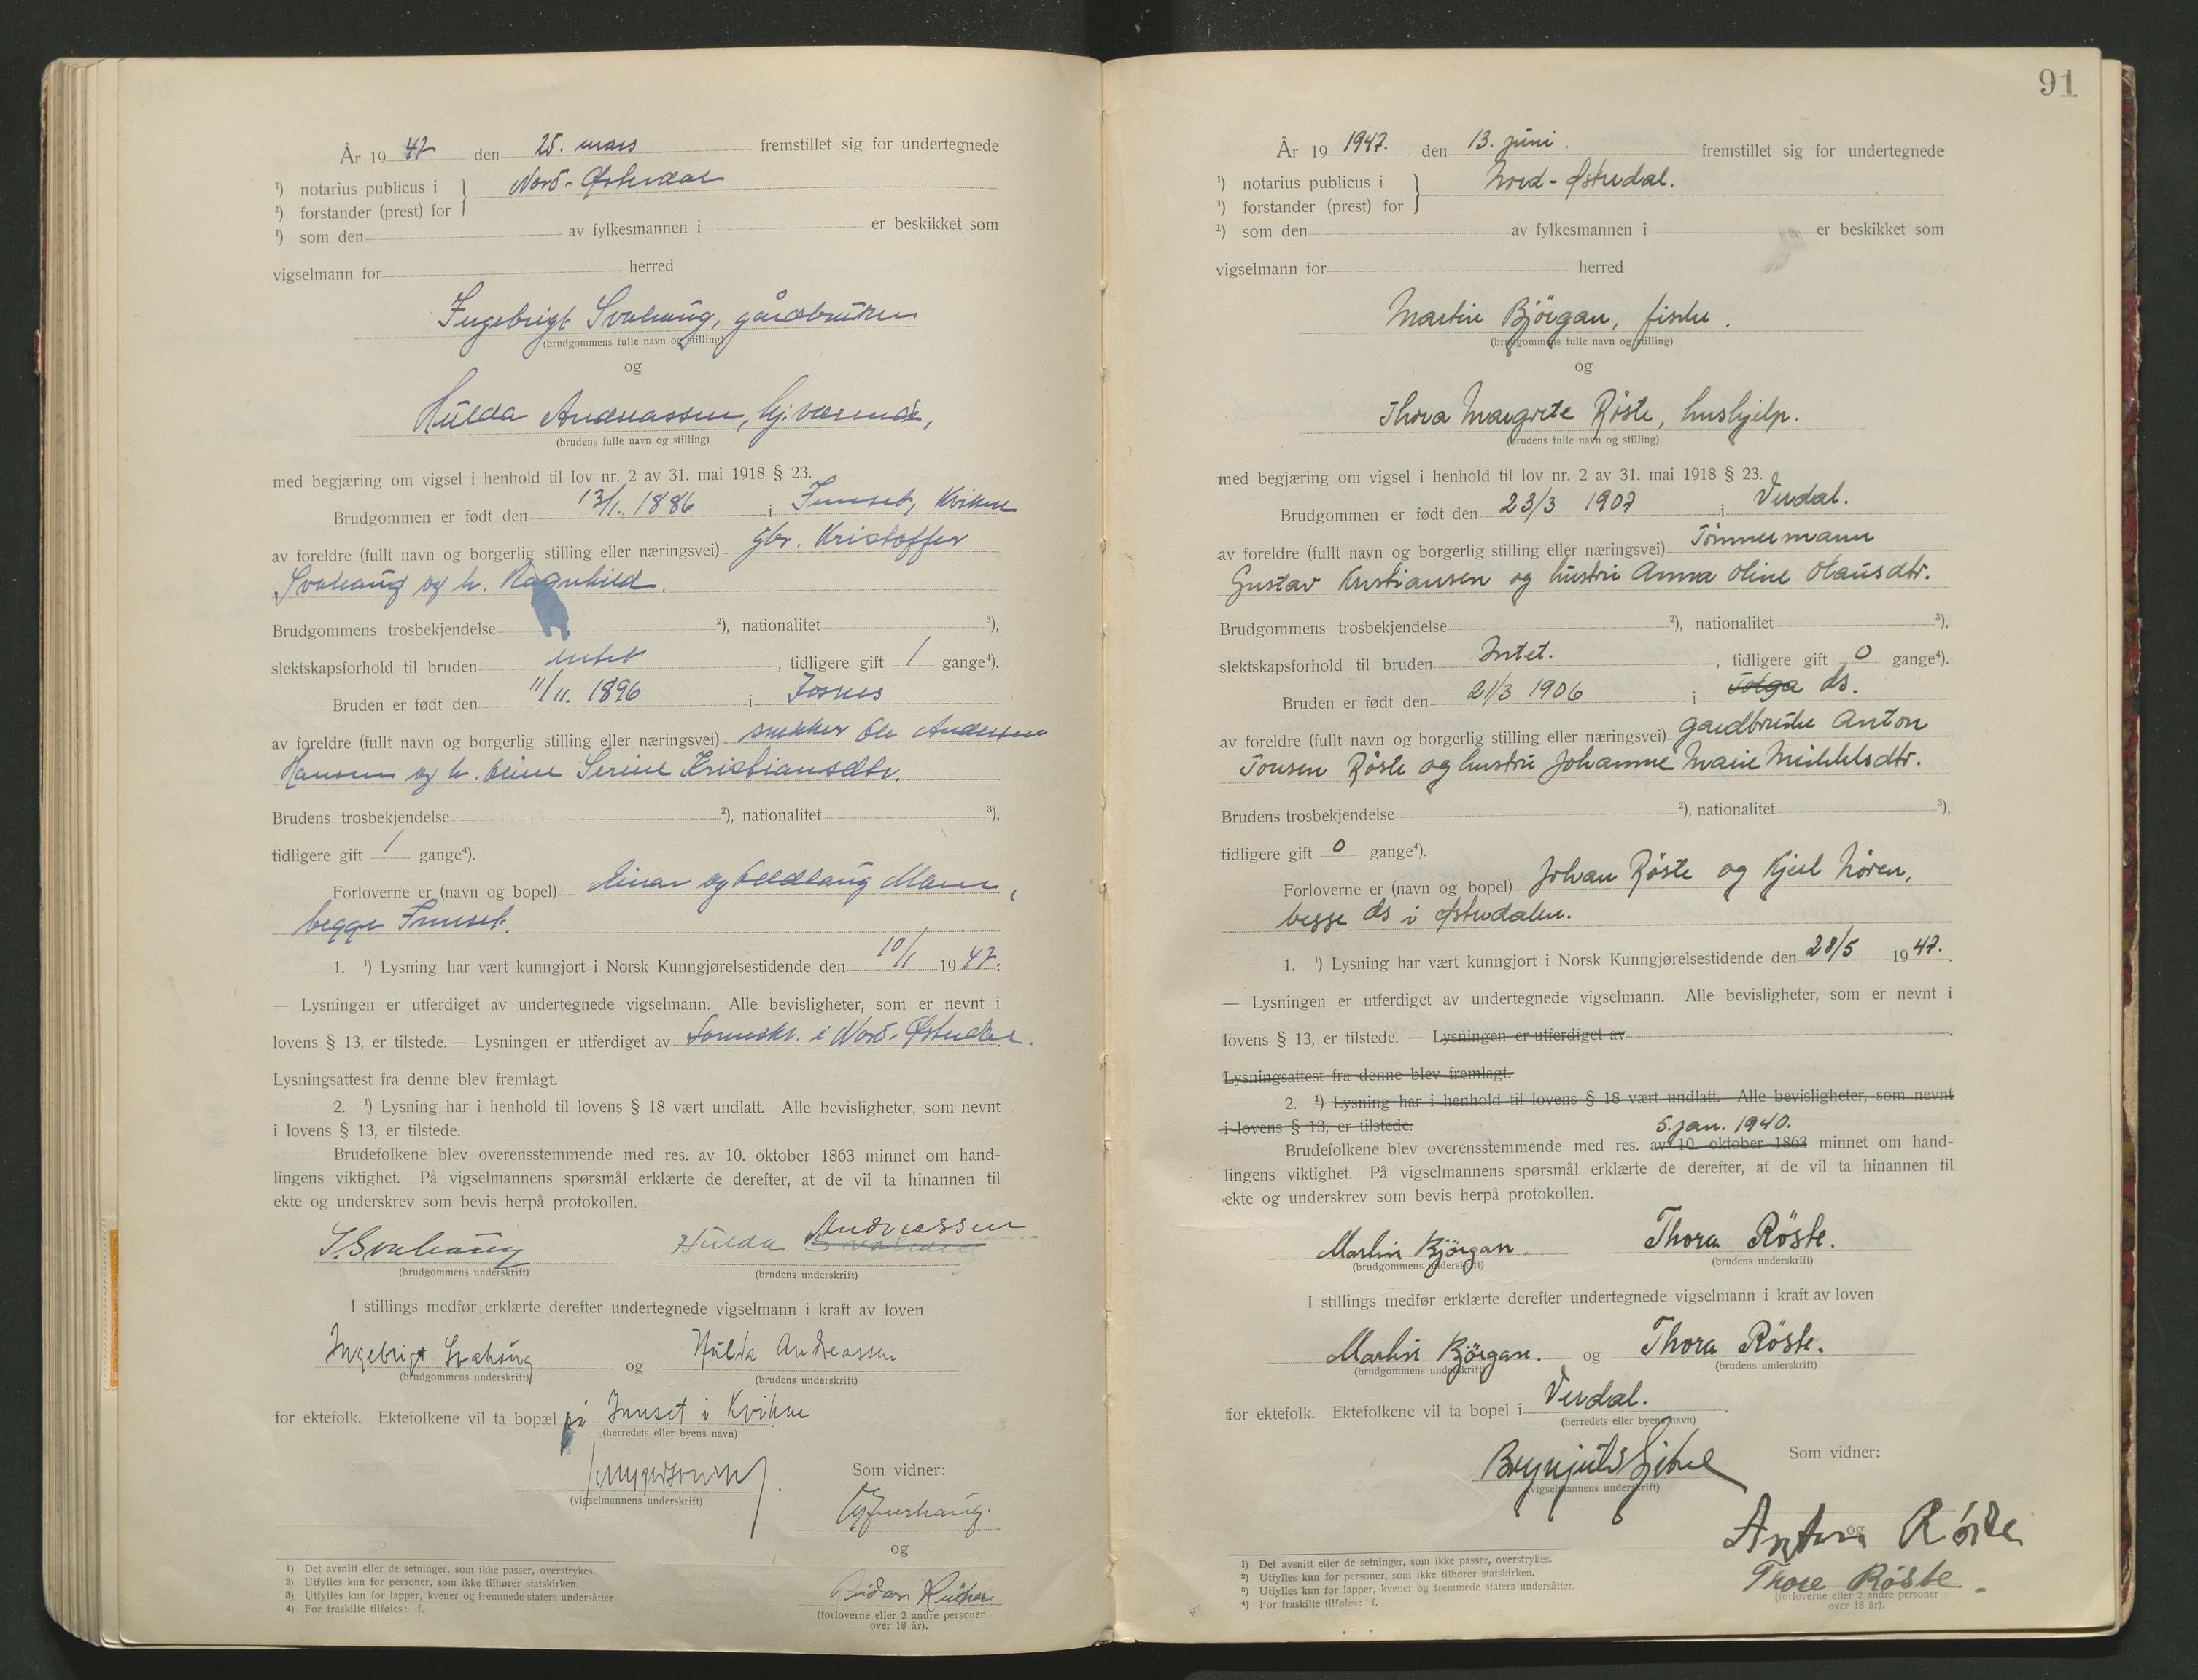 År 19 47 den 25. mars fremstillet sig for undertegnede
¹) notarius publicus i } Nord-Østerdal
¹) forstander (prest) for
¹) som den av fylkesmannen i er beskikket som
vigselmann for herred
Ingebrigt Svahaug, gårdbruker
(brudgommens fulle navn og stilling)
og
Hulda Andreassen, hj.værende,
(brudens fulle navn og stilling)
med begjæring om vigsel i henhold til lov nr. 2 av 31. mai 1918 § 23.
Brudgommen er født den 13/1. 1886 i Innset, Kvikne
av foreldre (fullt navn og borgerlig stilling eller næringsvei) gbr. Kristoffer
Svahaug og h. Ragnhild.
Brudgommens trosbekjendelse ²), nationalitet ³),
slektskapsforhold til bruden intet, tidligere gift 1 gange⁴).
Bruden er født den 11/11. 1896 i Fosnes
av foreldre (fullt navn og borgerlig stilling eller næringsvei) snekker Ole Andersen
Hansen og h. Oline Serine Kristiansdtr.
Brudens trosbekjendelse ²), nationalitet ³),
tidligere gift 1 gange⁴).
Forloverne er (navn og bopel) Einar og Oddlaug Moen,
begge Innset.
1. ¹) Lysning har vært kunngjort i Norsk Kunngjørelsestidende den 10/1 19 47.
— Lysningen er utferdiget av undertegnede vigselmann. Alle bevisligheter, som er nevnt i
lovens § 13, er tilstede. — Lysningen er utferdiget av Sorenskr. i Nord-Østerdal.
Lysningsattest fra denne blev fremlagt.
2. ¹) Lysning har i henhold til lovens § 18 vært undlatt. Alle bevisligheter, som nevnt
i lovens § 13, er tilstede.
Brudefolkene blev overensstemmende med res. av 10. oktober 1863 minnet om hand-
lingens viktighet. På vigselmannens spørsmål erklærte de derefter, at de vil ta hinannen til
ekte og underskrev som bevis herpå protokollen.
I. Svahaug Hulda Andreassen
(brudgommens underskrift) (brudens underskrift)
I stillings medfør erklærte derefter undertegnede vigselmann i kraft av loven
Ingebrigt Svahaug og Hulda Andreassen
(brudgommens underskrift) (brudens underskrift)
for ektefolk. Ektefolkene vil ta bopæl på Innset i Kvikne
(herredets eller byens navn)
Som vidner:
(vigselmannens underskrift)
og
(forloverne eller 2 andre personer
over 18 år).
1) Det avsnitt eller de setninger, som ikke passer, overstrykes.
2) Utfylles kun for personer, som ikke tilhører statskirken.
3) Utfylles kun for lapper, kvener og fremmede staters undersåtter
4) For fraskilte tilføies: f.
91
År 19 1947. den 13. juni. fremstillet sig for undertegnede
¹) notarius publicus i } Nord-Østerdal.
¹) forstander (prest) for
¹) som den av fylkesmannen i er beskikket som
vigselmann for herred
Martin Bjørgan, fisker.
(brudgommens fulle navn og stilling)
og
Thora Margrete Røste, hushjelp.
(brudens fulle navn og stilling)
med begjæring om vigsel i henhold til lov nr. 2 av 31. mai 1918 § 23.
Brudgommen er født den 23/3 1907 i Verdal.
av foreldre (fullt navn og borgerlig stilling eller næringsvei) Tømmermann
Gustav Kristiansen og hustru Anna Oline Olausdtr.
Brudgommens trosbekjendelse ²), nationalitet ³),
slektskapsforhold til bruden Intet., tidligere gift 0 gange⁴).
Bruden er født den 21/3 1906 i Tolga ds.
av foreldre (fullt navn og borgerlig stilling eller næringsvei) gardbruker Anton
Jonsen Røste og hustru Johanne Marie Mikkelsdtr.
Brudens trosbekjendelse ²), nationalitet ³),
tidligere gift 0 gange⁴).
Forloverne er (navn og bopel) Johan Røste og Kjell Noren,
begge ds i Østerdalen.
1. ¹) Lysning har vært kunngjort i Norsk Kunngjørelsestidende den 28/5 19 47.
— Lysningen er utferdiget av undertegnede vigselmann. Alle bevisligheter, som er nevnt i
lovens § 13, er tilstede. — Lysningen er utferdiget av
Lysningsattest fra denne blev fremlagt.
2. ¹) Lysning har i henhold til lovens § 18 vært undlatt. Alle bevisligheter, som nevnt
i lovens § 13, er tilstede.
5. jan. 1940.
Brudefolkene blev overensstemmende med res. av 10. oktober 1863 minnet om hand-
lingens viktighet. På vigselmannens spørsmål erklærte de derefter, at de vil ta hinannen til
ekte og underskrev som bevis herpå protokollen.
Martin Bjørgan. Thora Røste.
(brudgommens underskrift) (brudens underskrift)
I stillings medfør erklærte derefter undertegnede vigselmann i kraft av loven
Martin Bjørgan. og Thora Røste.
(brudgommens underskrift) (brudens underskrift)
for ektefolk. Ektefolkene vil ta bopel i Verdal.
(herredets eller byens navn)
Som vidner:
(vigselmannens underskrift)
Anton Røste
og
Thore Røste.
(forloverne eller 2 andre personer
over 18 år).
1) Det avsnitt eller de setninger, som ikke passer, overstrykes.
2) Utfylles kun for personer, som ikke tilhører statskirken.
3) Utfylles kun for lapper, kvener og fremmede staters undersåtter.
4) For fraskilte tilføies: f.